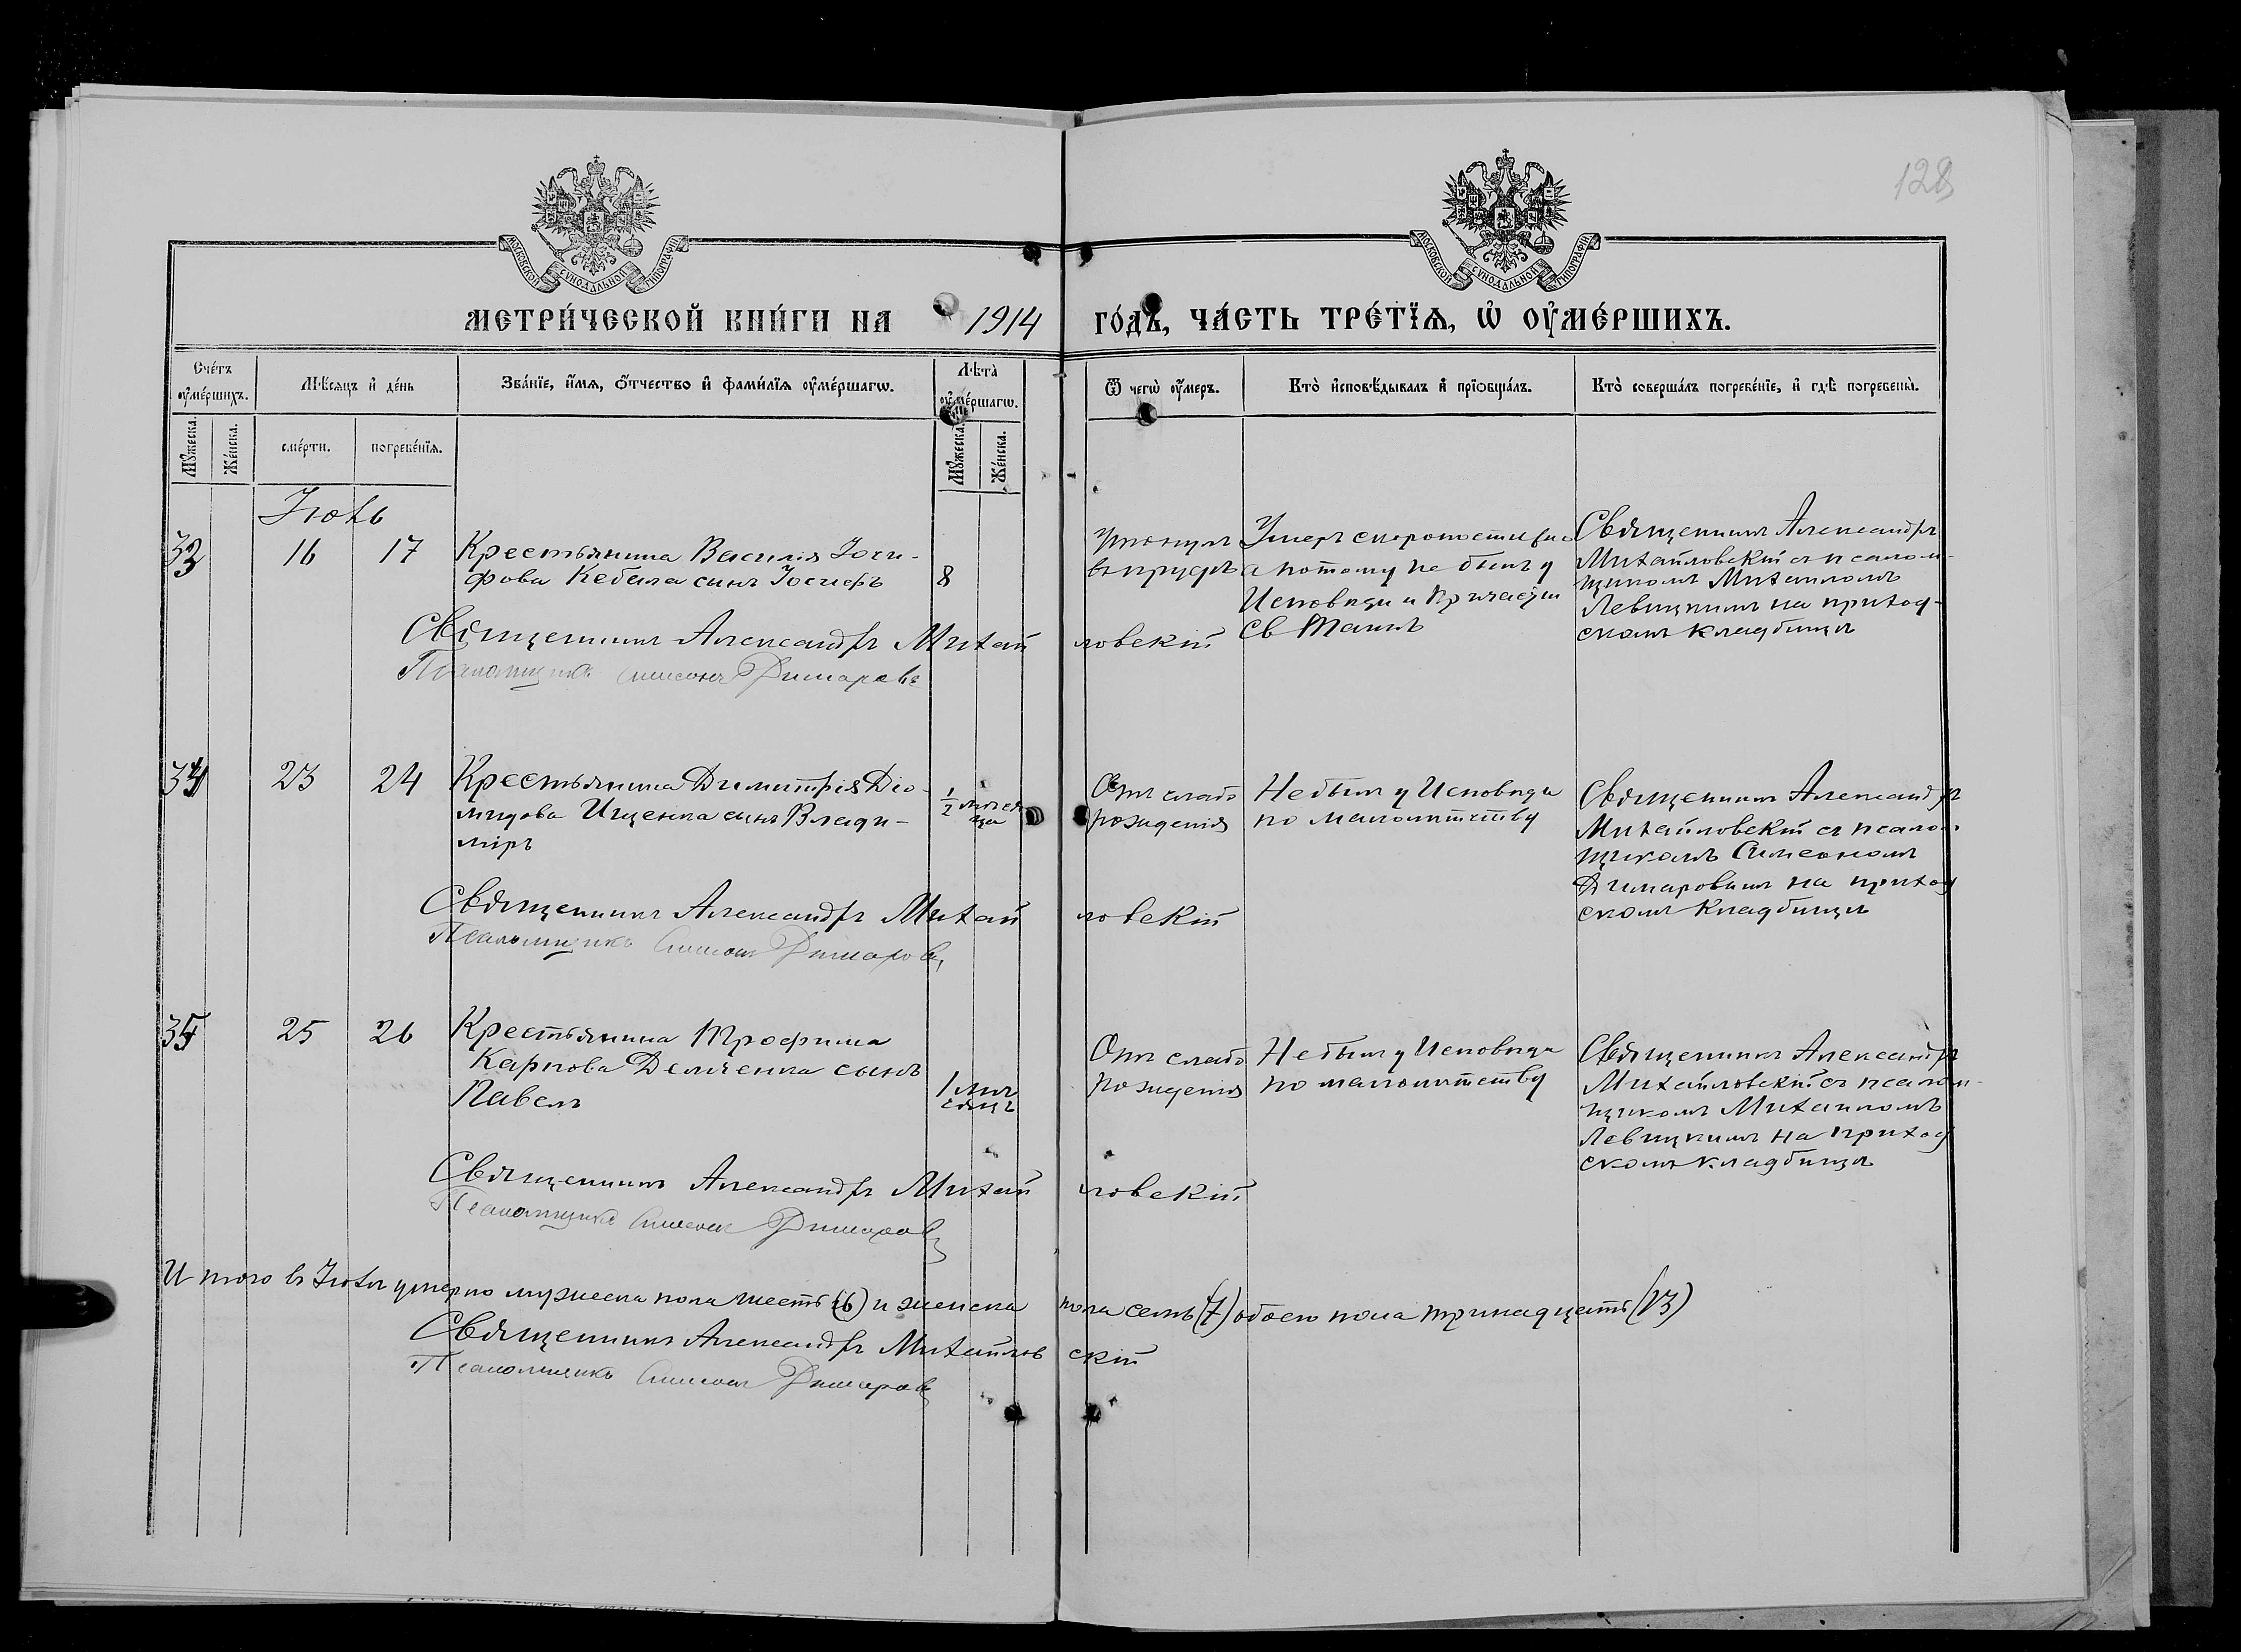 128
МОСКОВСКОЙ СѴНОДАЛЬНОЙ ТИПОГРАФІИ
МОСКОВСКОЙ СѴНОДАЛЬНОЙ ТИПОГРАФІИ
МЕТРИ́ЧЕСКОЙ КНИ́ГИ НА 1914 ГО́ДЪ, ЧА́СТЬ ТРЕ́ТЇѦ, Ѡ҆ ОУ҆МЕ́РШИХЪ.
Сче́тъ оу҆ме́ршихъ.
Мѣ́сяцъ и҆ де́нь
Зва́нїе, и҆́мѧ, ѻ҆́тчество и҆ фами́лїѧ оу҆ме́ршагѡ.
Лѣта̀ оу҆ме́ршагѡ.
Ѿ чегѡ̀ оу҆́меръ.
Кто̀ и҆сповѣ́дывалъ и҆ прїѡбща́лъ.
Кто̀ соверша́лъ погребе́нїе, и҆ гдѣ̀ погребены̀.
Мꙋ́жеска.
Же́нска.
сме́рти.
погребе́нїѧ.
Мꙋ́жеска.
Же́нска.
Іюль
33 16 17
Крестьянина Василія Іоси-
фова Кебала сынъ Іосифъ
8
Утонулъ
въ прудѣ
Умеръ скоропостижно
а потому не былъ у
Исповѣди и Причастія
Св Таинъ
Священникъ Александръ
Михайловскій съ псалом-
щикомъ Михаиломъ
Левицкимъ на приход-
скомъ кладбищѣ
Священникъ Александръ Михайловскій
Псаломщикъ Симеонъ Димаровъ
34 23 24
Крестьянина Димитрія Діо-
мидова Ищенка сынъ Влади-
міръ
1/2 мѣся
ца
Отъ слабо
рожденія
Не былъ у Исповѣди
по малолѣтству
Священникъ Александръ
Михайловскій съ псалом-
щикомъ Симеономъ
Димаровымъ на приход
скомъ кладбищѣ
Священникъ Александръ Михайловскій
Псаломщикъ Симеонъ Димаровъ
35 25 26
Крестьянина Трофима
Карпова Демченка сынъ
Павелъ
1 мѣ
сяцъ
Отъ слабо
рожденія
Не былъ у Исповѣди
по малолѣтству
Священникъ Александръ
Михайловскій съ псалом-
щикомъ Михаиломъ
Левицкимъ на приход
скомъ кладбищѣ
Священникъ Александръ Михайловскій
Псаломщикъ Симеонъ Димаровъ
Итого въ Іюлѣ умерло мужеска пола шесть (6) и женска пола семь (7) обоего пола тринадцать (13)
Священникъ Александръ Михайловскій
Псаломщикъ Симеонъ Димаровъ